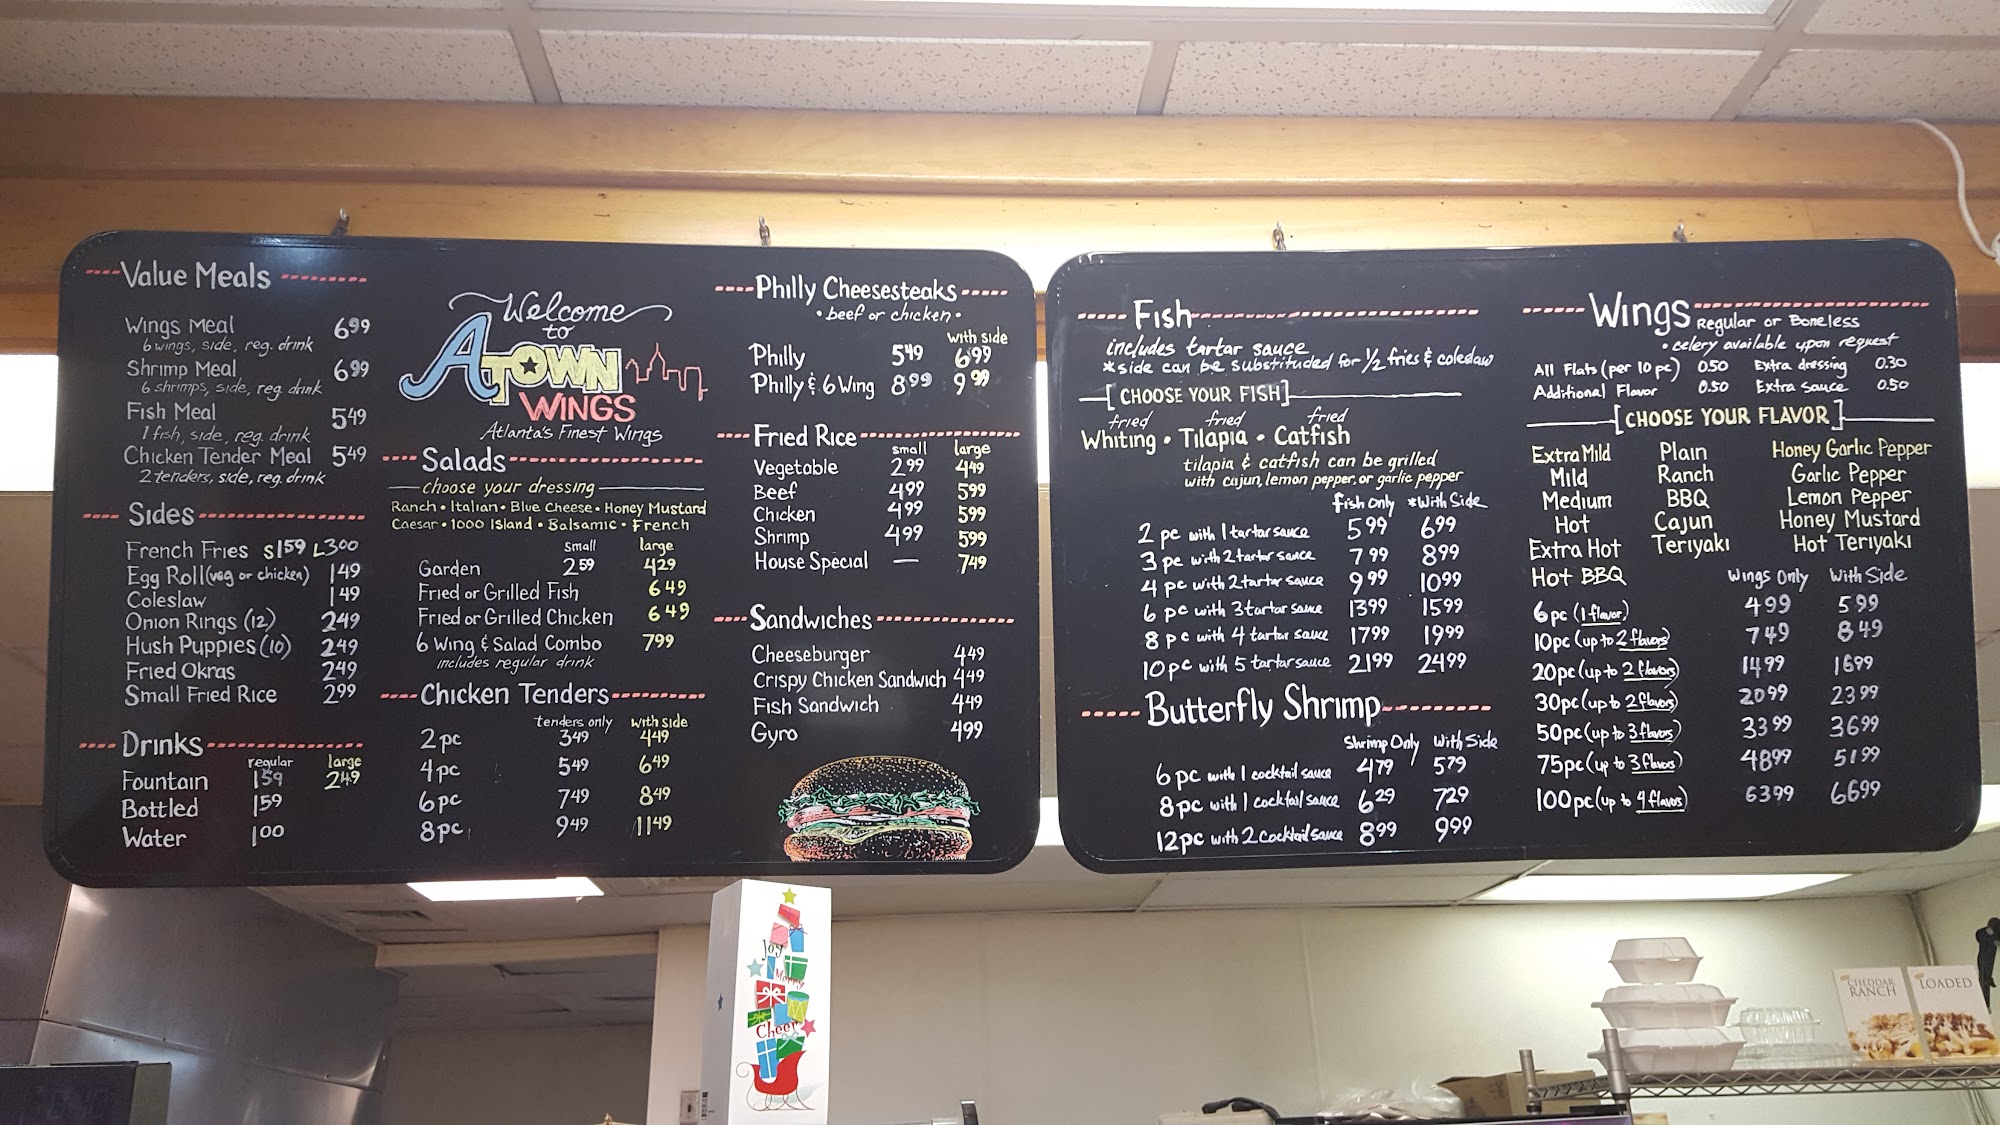 Value Meals
Wings Meal 6.99
6 wings, side, reg. drink
Shrimp Meal 6.99
6 shrimps, side, reg. drink
Fish Meal 5.49
1 fish, side, reg. drink
Chicken Tender Meal 5.49
2 tenders, side, reg. drink
Sides
French Fries S 1.59 L 3.00
Egg Roll (veg or chicken) 1.49
Coleslaw 1.49
Onion Rings (12) 2.49
Hush Puppies (10) 2.49
Fried Okras 2.49
Small Fried Rice 2.99
Drinks
regular large
Fountain 1.59 2.49
Bottled 1.59
Water 1.00
Welcome
to
ATOWN
WINGS
Atlanta's Finest Wings
Salads
choose your dressing
Ranch • Italian • Blue Cheese • Honey Mustard
Caesar • 1000 Island • Balsamic • French
small large
Garden 2.59 4.29
Fried or Grilled Fish 6.49
Fried or Grilled Chicken 6.49
6 Wing & Salad Combo 7.99
includes regular drink
Chicken Tenders
tenders only with side
2 pc 3.49 4.49
4 pc 5.49 6.49
6 pc 7.49 8.49
8 pc 9.49 11.49
Philly Cheesesteaks
• beef or chicken •
with side
Philly 5.49 6.99
Philly & 6 Wing 8.99 9.99
Fried Rice
small large
Vegetable 2.99 4.49
Beef 4.99 5.99
Chicken 4.99 5.99
Shrimp 4.99 5.99
House Special — 7.49
Sandwiches
Cheeseburger 4.49
Crispy Chicken Sandwich 4.49
Fish Sandwich 4.49
Gyro 4.99
Fish
includes tartar sauce
*side can be substituted for 1/2 fries & coleslaw
[CHOOSE YOUR FISH]
fried fried fried
Whiting • Tilapia • Catfish
tilapia & catfish can be grilled
with cajun, lemon pepper, or garlic pepper
Fish Only *With Side
2 pc with 1 tartar sauce 5.99 6.99
3 pc with 2 tartar sauce 7.99 8.99
4 pc with 2 tartar sauce 9.99 10.99
6 pc with 3 tartar sauce 13.99 15.99
8 pc with 4 tartar sauce 17.99 19.99
10 pc with 5 tartar sauce 21.99 24.99
Butterfly Shrimp
Shrimp Only With Side
6 pc with 1 cocktail sauce 4.79 5.79
8 pc with 1 cocktail sauce 6.29 7.29
12 pc with 2 cocktail sauce 8.99 9.99
Wings Regular or Boneless
• celery available upon request
All Flats (per 10 pc) 0.50 Extra dressing 0.30
Additional Flavor 0.50 Extra sauce 0.50
[CHOOSE YOUR FLAVOR]
Extra Mild Plain Honey Garlic Pepper
Mild Ranch Garlic Pepper
Medium BBQ Lemon Pepper
Hot Cajun Honey Mustard
Extra Hot Teriyaki Hot Teriyaki
Hot BBQ
Wings Only With Side
6 pc (1 flavor) 4.99 5.99
10 pc (up to 2 flavors) 7.49 8.49
20 pc (up to 2 flavors) 14.99 16.99
30 pc (up to 2 flavors) 20.99 23.99
50 pc (up to 3 flavors) 33.99 36.99
75 pc (up to 3 flavors) 48.99 51.99
100 pc (up to 4 flavors) 63.99 66.99
Joy
Merry
Cheer
CHEDDAR
RANCH
LOADED